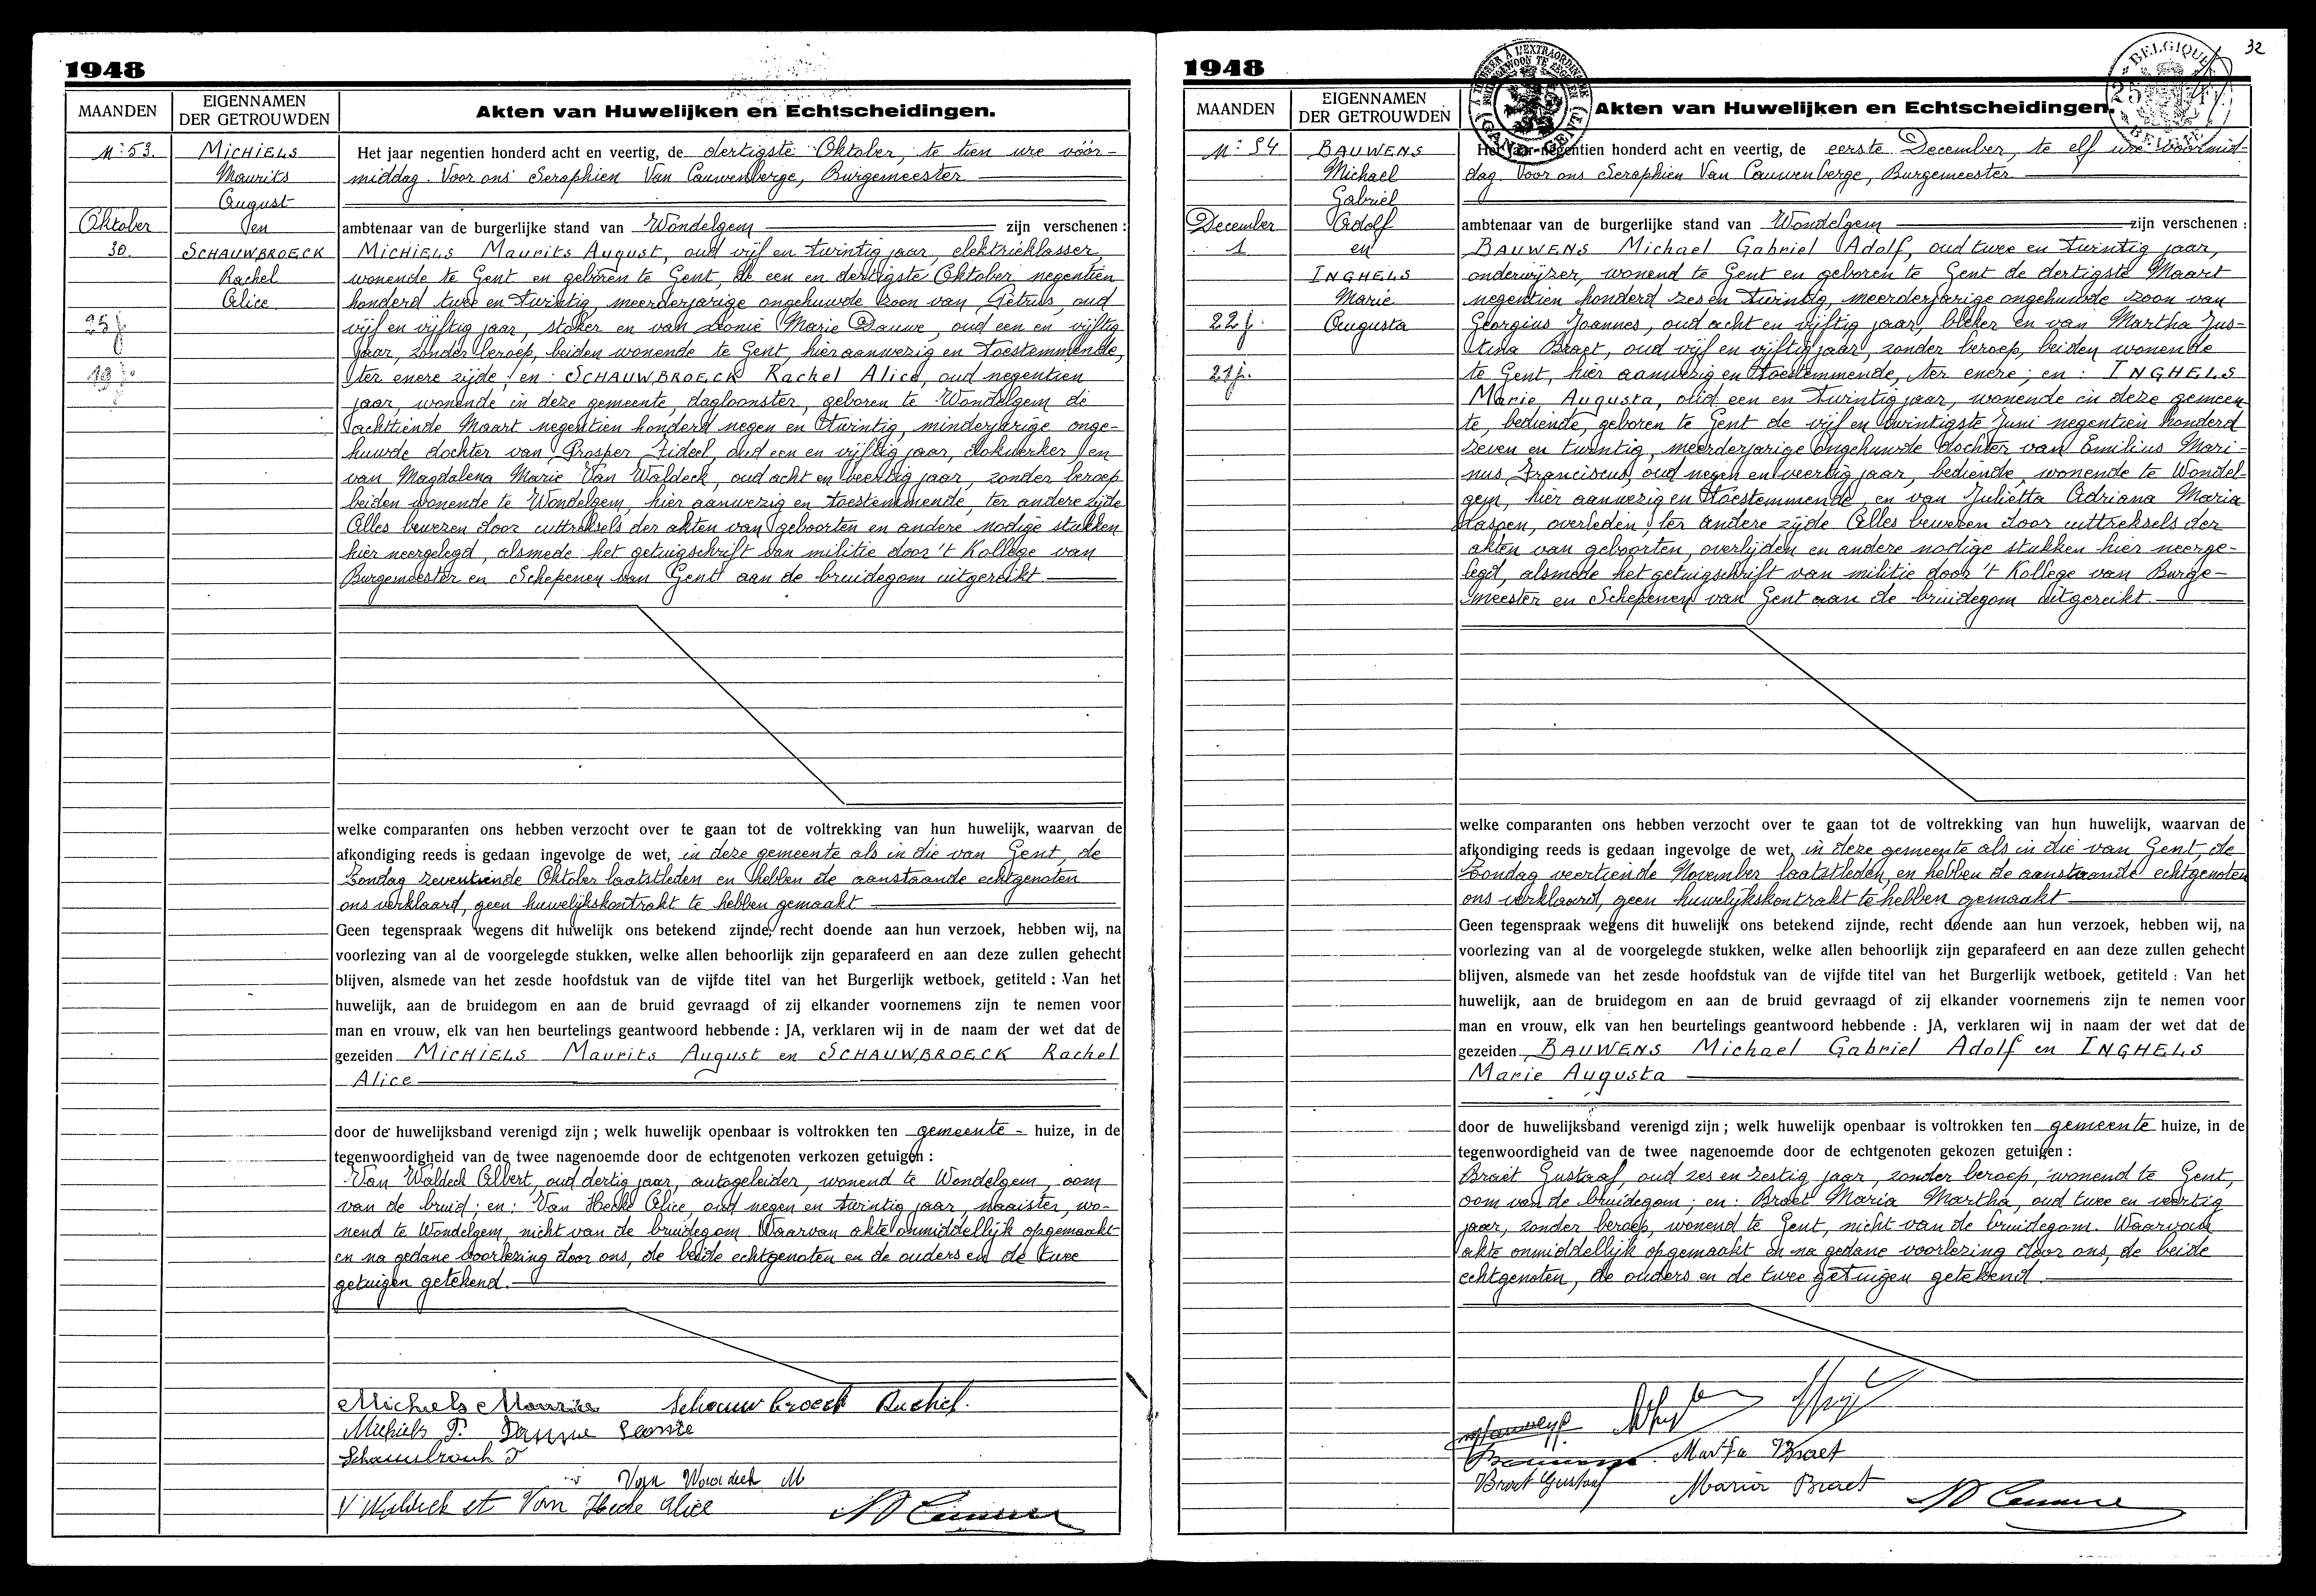 1948
MAANDEN
EIGENNAMEN
DER GETROUWDEN
Akten van Huwelijken en Echtscheidingen.
N° 53.
MICHIELS
Maurits
August
en
SCHAUWBROECK
Rachel
Alice
Oktober
30.
25 j.
19 j.
Het jaar negentien honderd acht en veertig, de dertigste Oktober, te tien ure vóór-
middag. Voor ons Seraphien Van Cauwenberge, Burgemeester
ambtenaar van de burgerlijke stand van Wondelgem zijn verschenen :
MICHIELS Maurits August, oud vijf en twintig jaar, elektrieklasser,
wonende te Gent en geboren te Gent, de een en dertigste Oktober negentien
honderd twee en twintig, meerderjarige ongehuwde zoon van Petrus, oud
vijf en vijftig jaar, stoker en van Leonie Marie Dauwe, oud een en vijftig
jaar, zonder beroep, beiden wonende te Gent, hier aanwezig en toestemmende,
ter enere zijde ; en : SCHAUWBROECK Rachel Alice, oud negentien
jaar, wonende in deze gemeente, dagloonster, geboren te Wondelgem de
achttiende Maart negentien honderd negen en twintig, minderjarige onge-
huwde dochter van Prosper Fideel, oud een en vijftig jaar, dokwerker en
van Magdalena Marie Van Waldeck, oud acht en veertig jaar, zonder beroep
beiden wonende te Wondelgem, hier aanwezig en toestemmende, ter andere zijde
Alles bewezen door uittreksels der akten van geboorten en andere nodige stukken
hier neergelegd, alsmede het getuigschrift van militie door 't Kollege van
Burgemeester en Schepenen van Gent aan de bruidegom uitgereikt
welke comparanten ons hebben verzocht over te gaan tot de voltrekking van hun huwelijk, waarvan de
afkondiging reeds is gedaan ingevolge de wet, in deze gemeente als in die van Gent, de
Zondag zeventiende Oktober laatstleden en hebben de aanstaande echtgenoten
ons verklaard, geen huwelijkskontrakt te hebben gemaakt
Geen tegenspraak wegens dit huwelijk ons betekend zijnde, recht doende aan hun verzoek, hebben wij, na
voorlezing van al de voorgelegde stukken, welke allen behoorlijk zijn geparafeerd en aan deze zullen gehecht
blijven, alsmede van het zesde hoofdstuk van de vijfde titel van het Burgerlijk wetboek, getiteld : Van het
huwelijk, aan de bruidegom en aan de bruid gevraagd of zij elkander voornemens zijn te nemen voor
man en vrouw, elk van hen beurtelings geantwoord hebbende : JA, verklaren wij in de naam der wet dat de
gezeiden MICHIELS Maurits August en SCHAUWBROECK Rachel
Alice
door de huwelijksband verenigd zijn ; welk huwelijk openbaar is voltrokken ten gemeente - huize, in de
tegenwoordigheid van de twee nagenoemde door de echtgenoten verkozen getuigen :
Van Waldeck Albert, oud dertig jaar, autogeleider, wonend te Wondelgem, oom
van de bruid ; en : Van Hecke Alice, oud negen en twintig jaar, naaister, wo-
nend te Wondelgem, nicht van de bruidegom. Waarvan akte onmiddellijk opgemaakt
en na gedane voorlezing door ons, de beide echtgenoten en de ouders en de twee
getuigen getekend.
Michiels Maurits Schauwbroeck Rachel.
Michiels P. Dauwe Leonie
Schauwbrouck F
Van Waldeck M
V Waldeck et Van Hecke Alice
1948
32
BELGIQUE
MAANDEN
EIGENNAMEN
DER GETROUWDEN
Akten van Huwelijken en Echtscheidingen.
N° 54
BAUWENS
Michael
Gabriel
Adolf
en
INGHELS
Marie
Augusta
December
1
22 j.
21 j.
Het jaar negentien honderd acht en veertig, de eerste December, te elf ure voormid-
dag. Voor ons Seraphien Van Cauwenberge, Burgemeester
ambtenaar van de burgerlijke stand van Wondelgem zijn verschenen :
BAUWENS Michael Gabriel Adolf, oud twee en twintig jaar,
onderwijzer, wonend te Gent en geboren te Gent de dertigste Maart
negentien honderd zes en twintig, meerderjarige ongehuwde zoon van
Georgius Joannes, oud acht en vijftig jaar, bleker en van Martha Jus-
tina Braet, oud vijf en vijftig jaar, zonder beroep, beiden wonende
te Gent, hier aanwezig en toestemmende, ter enere ; en : INGHELS
Marie Augusta, oud een en twintig jaar, wonende in deze gemeen-
te, bediende, geboren te Gent de vijf en twintigste Juni negentien honderd
zeven en twintig, meerderjarige ongehuwde dochter van Emilius Mari-
nus Franciscus, oud negen en veertig jaar, bediende, wonende te Wondel-
gem, hier aanwezig en toestemmende, en van Julietta Adriana Maria
Haspen, overleden, ter andere zijde. Alles bewezen door uittreksels der
akten van geboorten, overlijden en andere nodige stukken hier neerge-
legd, alsmede het getuigschrift van militie door 't Kollege van Burge-
meester en Schepenen van Gent aan de bruidegom uitgereikt.
welke comparanten ons hebben verzocht over te gaan tot de voltrekking van hun huwelijk, waarvan de
afkondiging reeds is gedaan ingevolge de wet, in deze gemeente als in die van Gent, de
Zondag veertiende November laatstleden, en hebben de aanstaande echtgenoten
ons verklaard, geen huwelijkskontrakt te hebben gemaakt
Geen tegenspraak wegens dit huwelijk ons betekend zijnde, recht doende aan hun verzoek, hebben wij, na
voorlezing van al de voorgelegde stukken, welke allen behoorlijk zijn geparafeerd en aan deze zullen gehecht
blijven, alsmede van het zesde hoofdstuk van de vijfde titel van het Burgerlijk wetboek, getiteld : Van het
huwelijk, aan de bruidegom en aan de bruid gevraagd of zij elkander voornemens zijn te nemen voor
man en vrouw, elk van hen beurtelings geantwoord hebbende : JA, verklaren wij in naam der wet dat de
gezeiden BAUWENS Michael Gabriel Adolf en INGHELS
Marie Augusta
door de huwelijksband verenigd zijn ; welk huwelijk openbaar is voltrokken ten gemeente huize, in de
tegenwoordigheid van de twee nagenoemde door de echtgenoten gekozen getuigen :
Braet Gustaaf, oud zes en zestig jaar, zonder beroep, wonend te Gent,
oom van de bruidegom ; en : Braet Maria Martha, oud twee en veertig
jaar, zonder beroep, wonend te Gent, nicht van de bruidegom. Waarvan
akte onmiddellijk opgemaakt en na gedane voorlezing door ons, de beide
echtgenoten, de ouders en de twee getuigen getekend.
Martha Braet
Braet Gustaaf Maria Braet